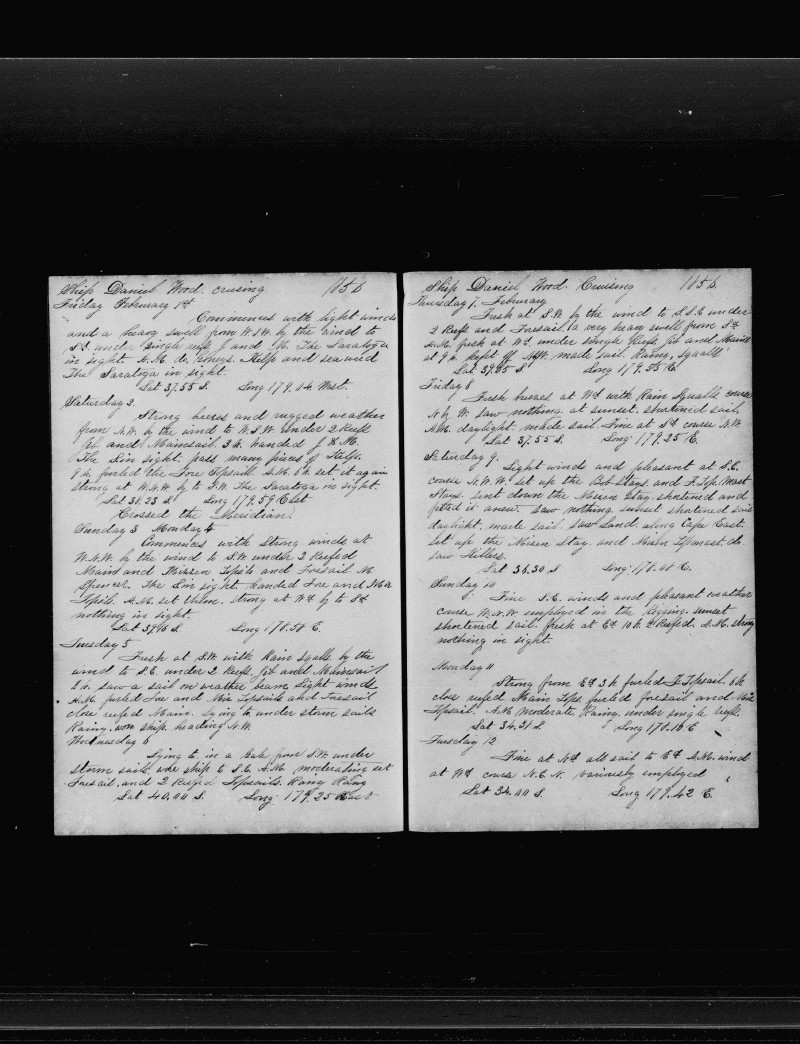 Ship Daniel Wood. crusing 1856
Friday February 1st
Commences with light winds
and a heavy swell from W.S.W. by the wind to
Sd. under single reefs J and M. The Saratoga
in sight. A.M. do. things. Kelp and sea weed
The Saratoga in sight.
Lat 37.55 S. Long 179.04 West.
Saturday 2.
Strong breeses and rugged weather
from N.W. by the wind to W.S.W. under 2 Reefs
Jib and Mainsail 3 h. handed J & M.
The Lion sight. pass many pieces of Kelp.
9 h. furled the Fore Topsail. A.M. 6 h. set it again
strong at W.N.W. by to S.W. The Saratoga in sight.
Lat 38.23 S Long 179.59 East
Crossed the Meridian.
Sunday 3 Monday 4
Commences with Strong winds at
W.N.W. by the wind to S.W. under 2 Reefed
Main and Missen Topsails and Foresail. M
Spencer. The Lion sight. handed Fore and Mizn
Topsls. A.M. set them. strong at Wd by to Sd
nothing in sight.
Lat 39.16 S. Long 178.50 E.
Tuesday 5
Fresh at S.W. with Rain Squalls by the
wind to S.E. under 2 Reefs Jib and Mainsail
5 h. saw a sail on weather beam. Light winds
A.M. furled Fore and Miz Topsails and Foresail
close reefed Main. Lying to under storm sails
Rainy. wore ship heading N.W.
Wednesday 6
Lying to in a Gale from S.W. under
storm sails. wore ship to S.E. A.M. moderating set
Foresail. and 2 Reefed Topsails. Rainy
Lat 40.00 S. Long: 179.25 East
Ship Daniel Wood. Cruising 1856.
Thursday 7. February
Fresh at S.W. by the wind to S.S.E under
2 Reefs and Foresail. a very heavy swell from Sd
A.M. fresh at Wd under single Reefs Jib and Main
at 9 h. kept off N.W. made sail. Rainy, squalls
Lat 39.05 S Long 179.55 E
Friday 8
Fresh breses at Wd with Rain Squalls course
N by W. saw nothing. at sunset. shortened sail.
A.M. daylight. made sail. Fine at Sd course N.W.
Lat 37.55 S. Long 179.25 E.
Saturday 9.
Light winds and pleasant at S.E.
course N.W.W. set up the Bob stays. and F. Top. Mast
Stays. sent down the Mizen Stay. shortened and
fitted it anew. Saw nothing. sunset shortened sail
daylight. made sail. Saw Land. along Cape East.
set up the Mizen Stay. and Mizen Topmast. do.
saw Killers.
Lat 36.30 S Long. 178.00 E.
Sunday 10
Fine S.E. winds and pleasant weather
course W.N.W. employed in the Rigging. sunset
shortened sail. fresh at Ed 10 h. 2 Reefed. A.M. strong
nothing in sight.
Monday 11
Strong from Ed 3 h. furled F. Topsail. 6 h
close reefed Main Tops. furled foresail and Miz
Topsail. A.M. moderate Rainy. under single reefs.
Lat 34.31 S. Long 178.10 E
Tuesday 12
Fine at Nd all sail to Ed A.M. wind
at Wd course N.E.N. variously employed
Lat 34.00 S. Long 179.42 E.